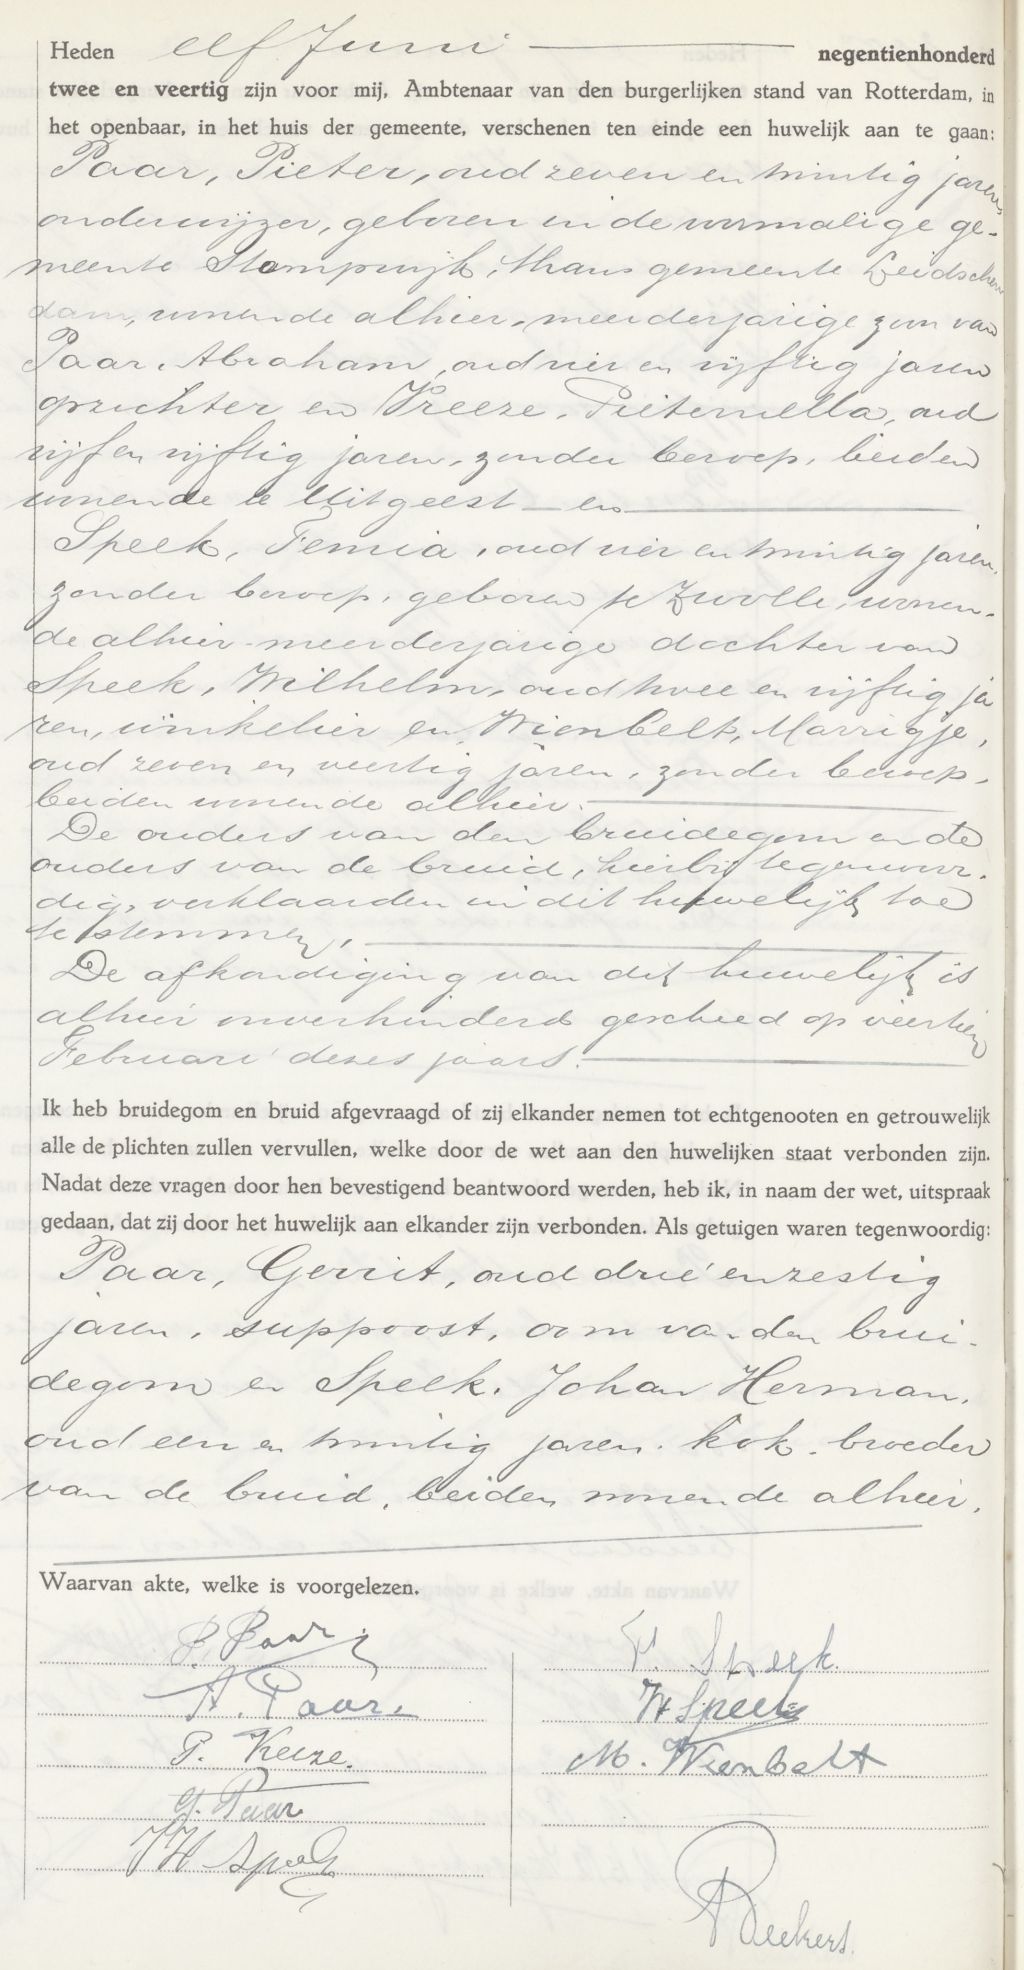 Heden elf Juni negentienhonderd
twee en veertig zijn voor mij, Ambtenaar van den burgerlijken stand van Rotterdam, in
het openbaar, in het huis der gemeente, verschenen ten einde een huwelijk aan te gaan:
Paar, Pieter, oud zeven en twintig jaren
onderwijzer, geboren in de voormalige ge-
meente Stompwijk, thans gemeente Leidschen
dam, wonende alhier, meerderjarige zoon van
Paar, Abraham, oud vier en vijftig jaren
opzichter en Vreeze, Pieternella, oud
vijf en vijftig jaren, zonder beroep, beiden
wonende te Uitgeest en
Speek, Femia, oud vier en twintig jaren,
zonder beroep, geboren te Zwolle, wonen-
de alhier meerderjarige dochter van
Speek, Wilhelm, oud twee en vijftig ja
ren, winkelier en Wienbelt, Marrigje,
oud zeven en veertig jaren, zonder beroep,
beiden wonende alhier.
De ouders van den bruidegom en de
ouders van de bruid, hierbij tegenwoor-
dig, verklaarden in dit huwelijk toe
te stemmen,
De afkondiging van dit huwelijk is
alhier onverhinderd geschied op veertien
Februari dezes jaars.
Ik heb bruidegom en bruid afgevraagd of zij elkander nemen tot echtgenooten en getrouwelijk
alle de plichten zullen vervullen, welke door de wet aan den huwelijken staat verbonden zijn.
Nadat deze vragen door hen bevestigend beantwoord werden, heb ik, in naam der wet, uitspraak
gedaan, dat zij door het huwelijk aan elkander zijn verbonden. Als getuigen waren tegenwoordig:
Paar, Gerrit, oud drie en zestig
jaren, suppoost, oom van den brui-
degom en Speek, Johan Herman,
oud een en twintig jaren, kok, broeder
van de bruid, beiden wonende alhier.
Waarvan akte, welke is voorgelezen.
P. Paar
A. Paar
P. Vreeze.
G. Paar
JH Speek
F. Speek.
W Speek
M. Wienbelt